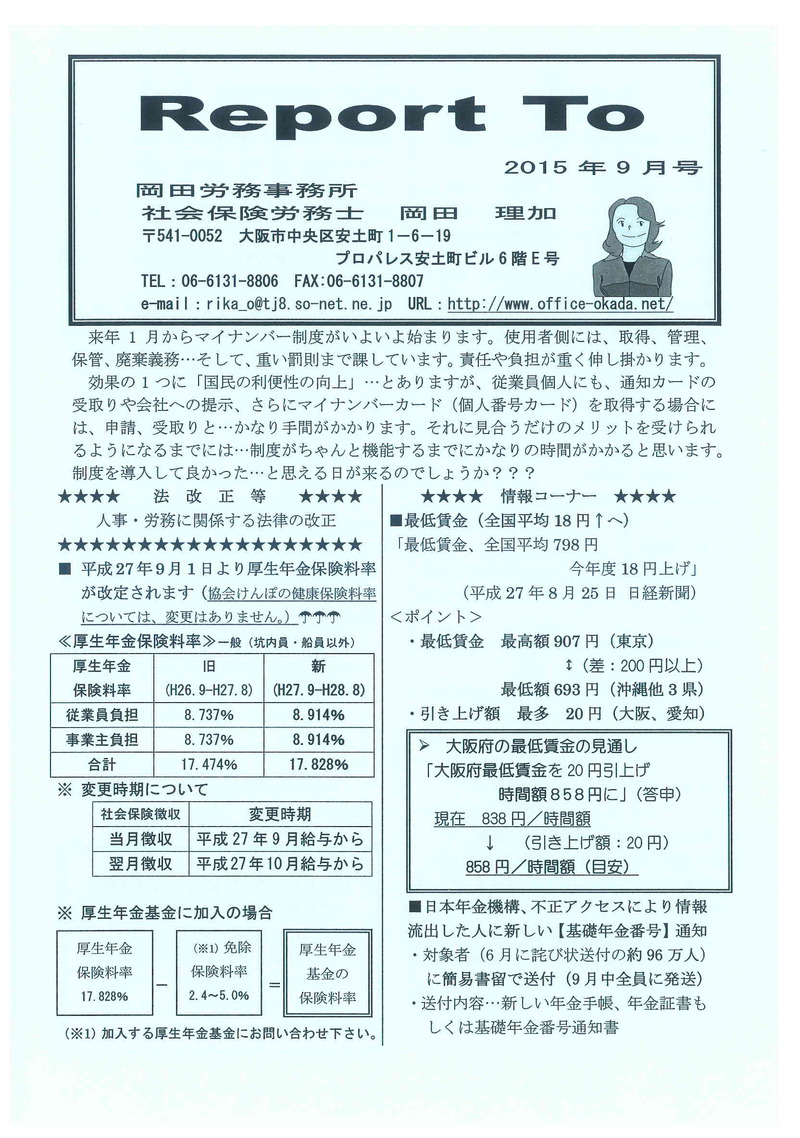 Report To
2015 年 9 月号
岡田労務事務所
社会保険労務士　岡田　理加
〒541-0052　大阪市中央区安土町1－6－19
プロパレス安土町ビル6階E号
TEL：06-6131-8806　FAX:06-6131-8807
e-mail：rika_o@tj8.so-net.ne.jp　URL：http://www.office-okada.net/
来年1月からマイナンバー制度がいよいよ始まります。使用者側には、取得、管理、
保管、廃棄義務…そして、重い罰則まで課しています。責任や負担が重く伸し掛かります。
効果の1つに「国民の利便性の向上」…とありますが、従業員個人にも、通知カードの
受取りや会社への提示、さらにマイナンバーカード（個人番号カード）を取得する場合に
は、申請、受取りと…かなり手間がかかります。それに見合うだけのメリットを受けられ
るようになるまでには…制度がちゃんと機能するまでにかなりの時間がかかると思います。
制度を導入して良かった…と思える日が来るのでしょうか？？？
★★★★　法　改　正　等　★★★★
人事・労務に関係する法律の改正
★★★★★★★★★★★★★★★★★★★
■ 平成27年9月1日より厚生年金保険料率
が改定されます（協会けんぽの健康保険料率
については、変更はありません。）☂☂☂
≪厚生年金保険料率≫一般（坑内員・船員以外）
厚生年金　旧　新
保険料率　(H26.9-H27.8)　(H27.9-H28.8)
従業員負担　8.737%　8.914%
事業主負担　8.737%　8.914%
合計　17.474%　17.828%
※ 変更時期について
社会保険徴収　変更時期
当月徴収　平成27年9月給与から
翌月徴収　平成27年10月給与から
※ 厚生年金基金に加入の場合
厚生年金　(※1) 免除　厚生年金
保険料率　－　保険料率　＝　基金の
17.828%　2.4～5.0%　保険料率
(※1) 加入する厚生年金基金にお問い合わせ下さい。
★★★★　情報コーナー　★★★★
■最低賃金（全国平均18円↑へ）
「最低賃金、全国平均798円
今年度18円上げ」
（平成27年8月25日 日経新聞）
＜ポイント＞
・最低賃金　最高額907円（東京）
↕（差：200円以上）
最低額693円（沖縄他3県）
・引き上げ額　最多　20円（大阪、愛知）
➢ 大阪府の最低賃金の見通し
「大阪府最低賃金を20円引上げ
時間額858円に」（答申）
現在　838円／時間額
↓　（引き上げ額：20円）
858円／時間額（目安）
■日本年金機構、不正アクセスにより情報
流出した人に新しい【基礎年金番号】通知
・対象者（6月に詫び状送付の約96万人）
に簡易書留で送付（9月中全員に発送）
・送付内容…新しい年金手帳、年金証書も
しくは基礎年金番号通知書